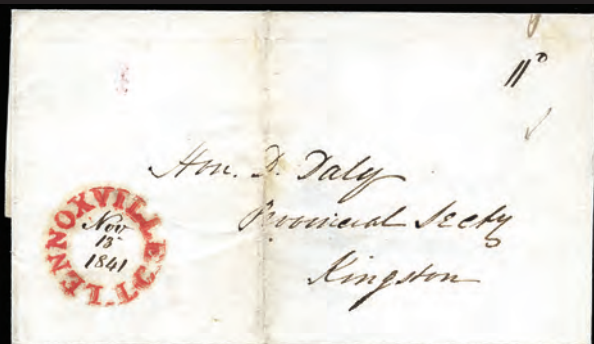 11ᴰ
Hon. D. Daly
Provincial Secty
Kingston
LENNOXVILLE L.T.
Nov
13
1841